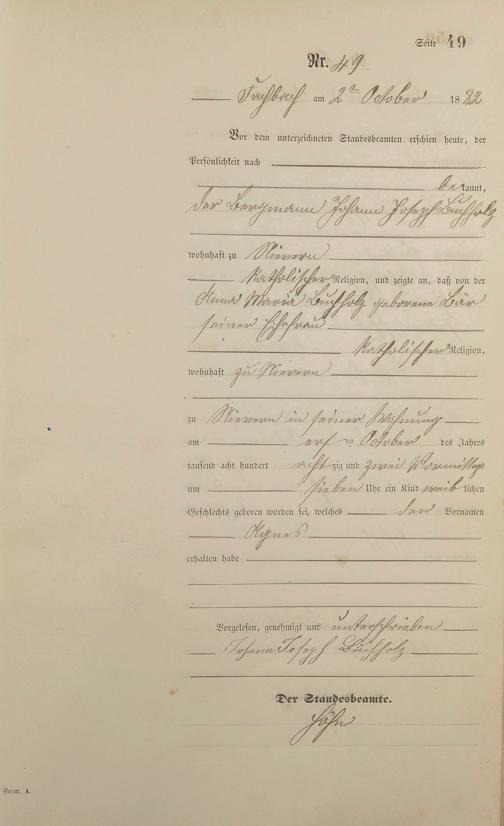 Seite 49
Nr. 49
Fachbach am 2ten October 1882
Vor dem unterzeichneten Standesbeamten erschien heute, der
Persönlichkeit nach
bekannt,
der Bergmann Johann Joseph Buchholz
wohnhaft zu Nievern
katholischer Religion, und zeigte an, daß von der
Anna Maria Buchholz geborene Bär
seiner Ehefrau
katholischer Religion,
wohnhaft zu Nievern
zu Nievern in seiner Wohnung
am October des Jahres
tausend acht hundert achtzig und zwei Vormittags
um sieben Uhr ein Kind weiblichen
Geschlechts geboren worden sei, welches den Vornamen
Agnes
erhalten habe
Vorgelesen, genehmigt und unterschrieben
Johann Joseph Buchholz
Der Standesbeamte.
Höhn
Form. A.